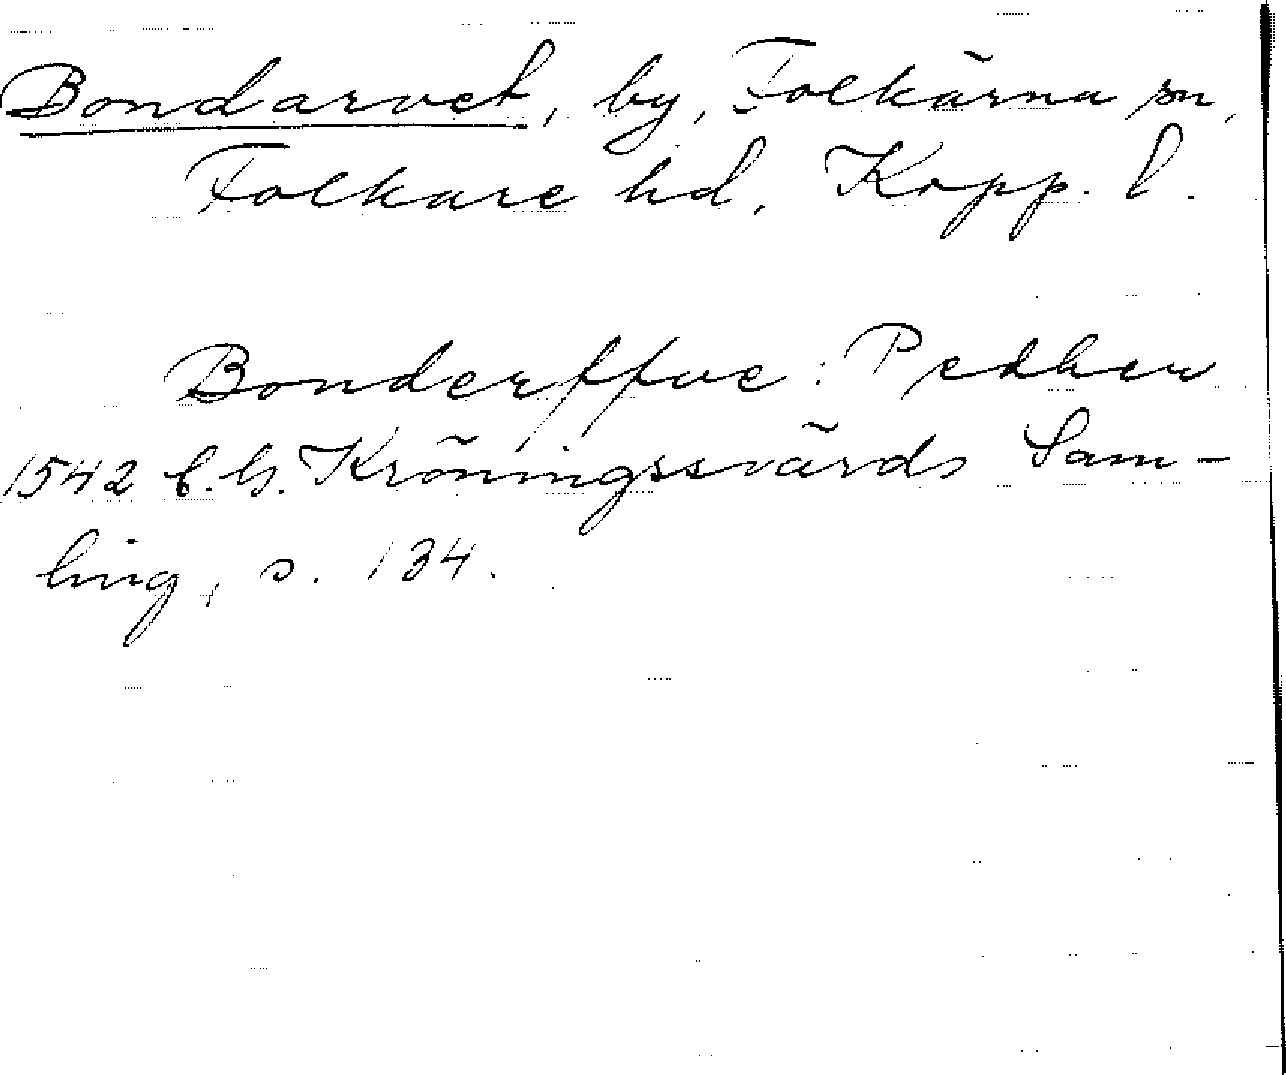 Bondarvet, by, Folkärna sn,
Folkare hd, Kopp. l.
Bonderffue: Pedher
1542 f.b. Kröningssvärds Sam-
ling, s. 134.